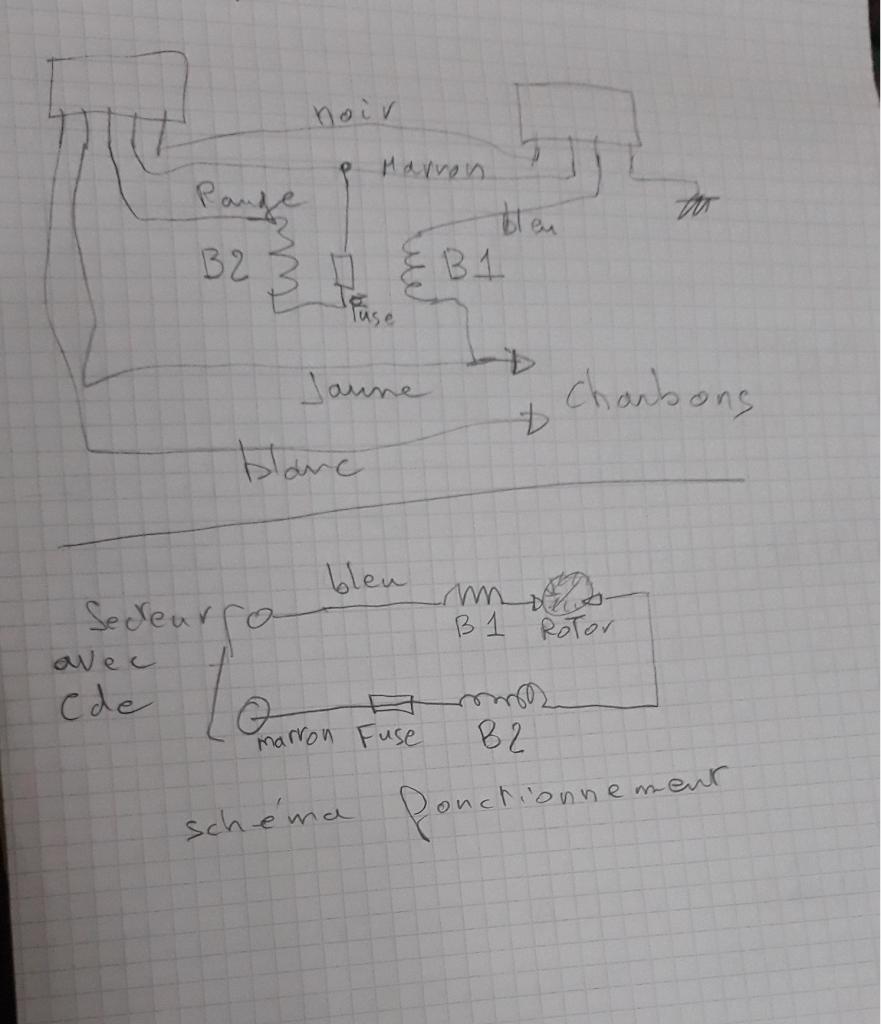 noir
Marron
Rouge
bleu
B2
B1
Fuse
Jaune
Charbons
blanc
bleu
Secteur
B1
Rotor
avec
Cde
marron Fuse
B2
schéma fonctionnement